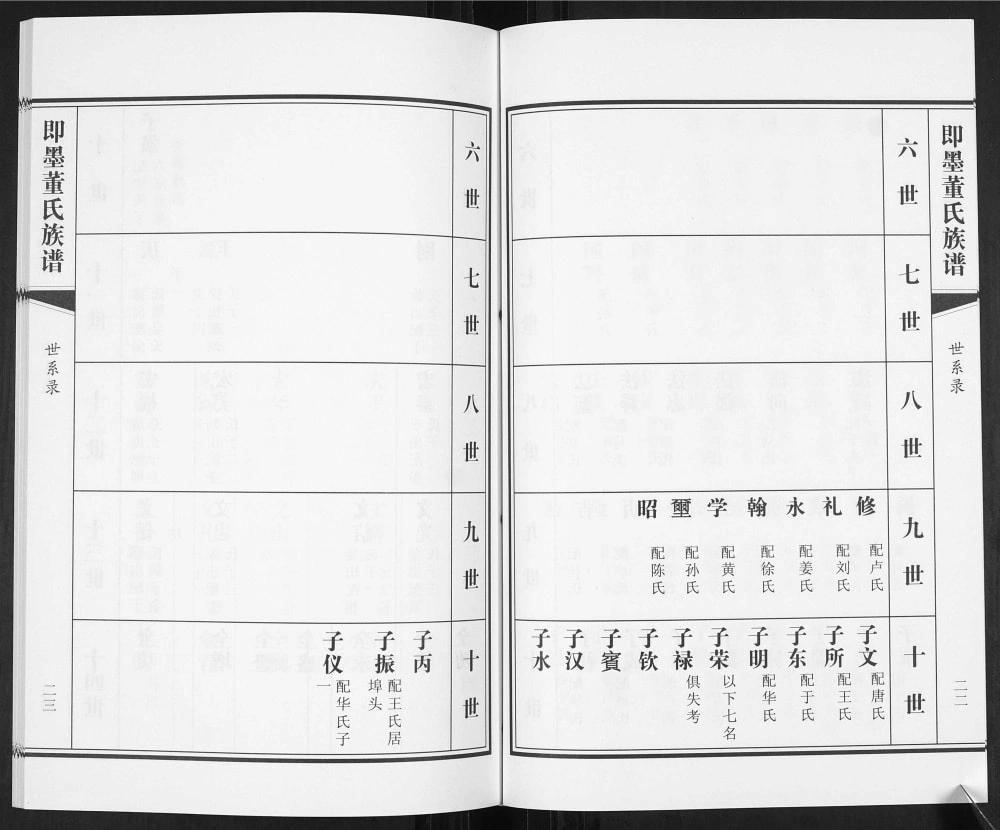 即墨董氏族谱
世系录
二二
六世
七世
八世
九世
修
配卢氏
礼
配刘氏
永
配姜氏
翰
配徐氏
学
配黄氏
璽
配孙氏
昭
配陈氏
十世
子文
配唐氏
子所
配王氏
子东
配于氏
子明
配华氏
子荣
以下七名
俱失考
子禄
子钦
子賓
子汉
子水
六世
七世
八世
九世
十世
子丙
子振
配王氏居
埠头
子仪
配华氏子
一
即墨董氏族谱
世系录
二三